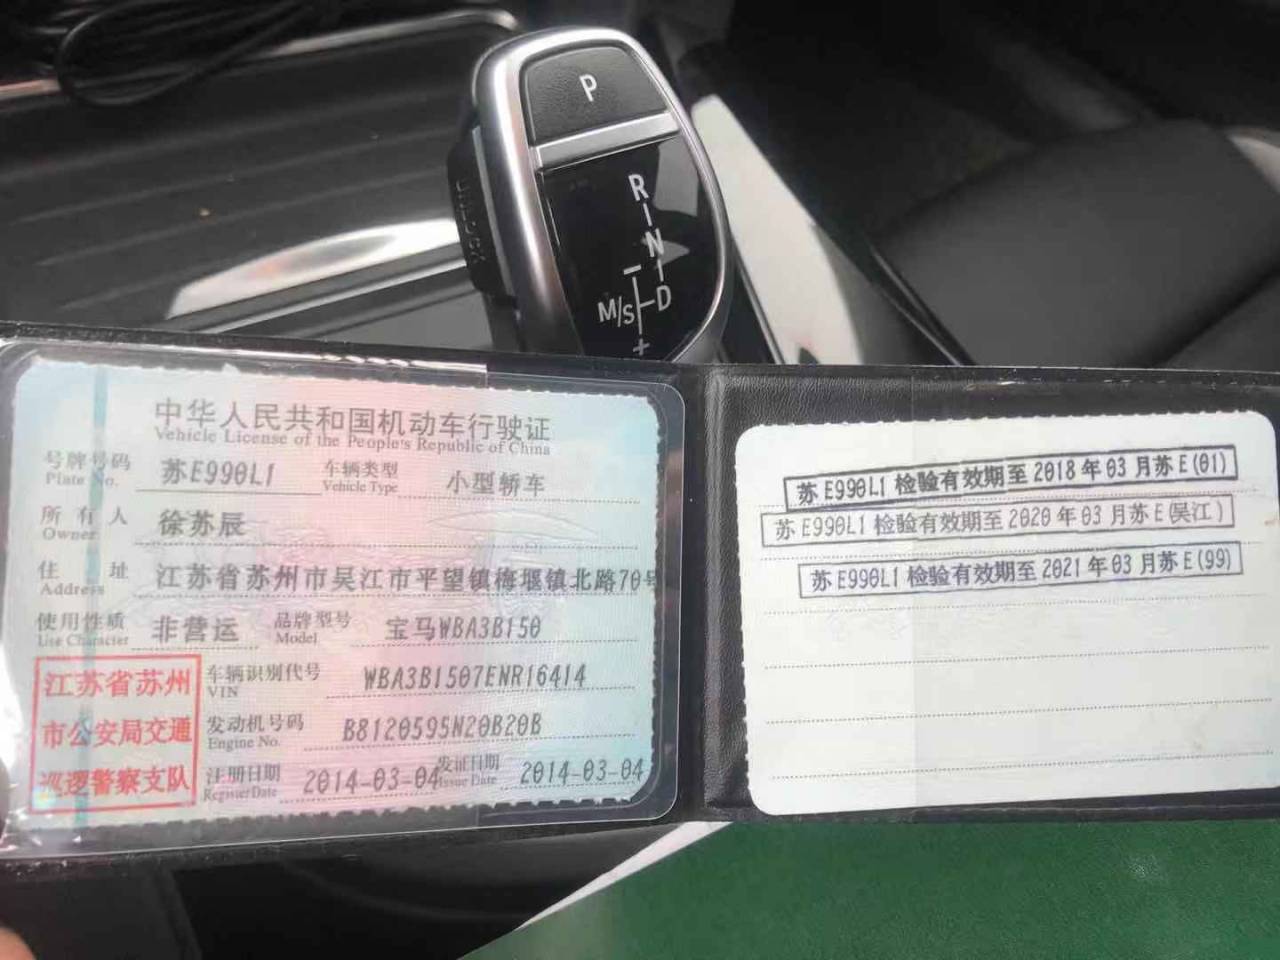 P
R
N
M/S
D
+
UNLOCK
中华人民共和国机动车行驶证
Vehicle License of the People's Republic of China
号牌号码 苏E990L1 车辆类型 小型轿车
Plate No. Vehicle Type
所有人 徐苏辰
Owner
住址 江苏省苏州市吴江市平望镇梅堰镇北路70号
Address
使用性质 非营运 品牌型号 宝马WBA3B150
Use Character Model
江苏省苏州
市公安局交通
巡逻警察支队
车辆识别代号 WBA3B1507ENR16414
VIN
发动机号码 B8120595N20B20B
Engine No.
注册日期 2014-03-04 发证日期 2014-03-04
Register Date Issue Date
苏E990L1检验有效期至2018年03月苏E(01)
苏E990L1检验有效期至2020年03月苏E(吴江)
苏E990L1检验有效期至2021年03月苏E(99)